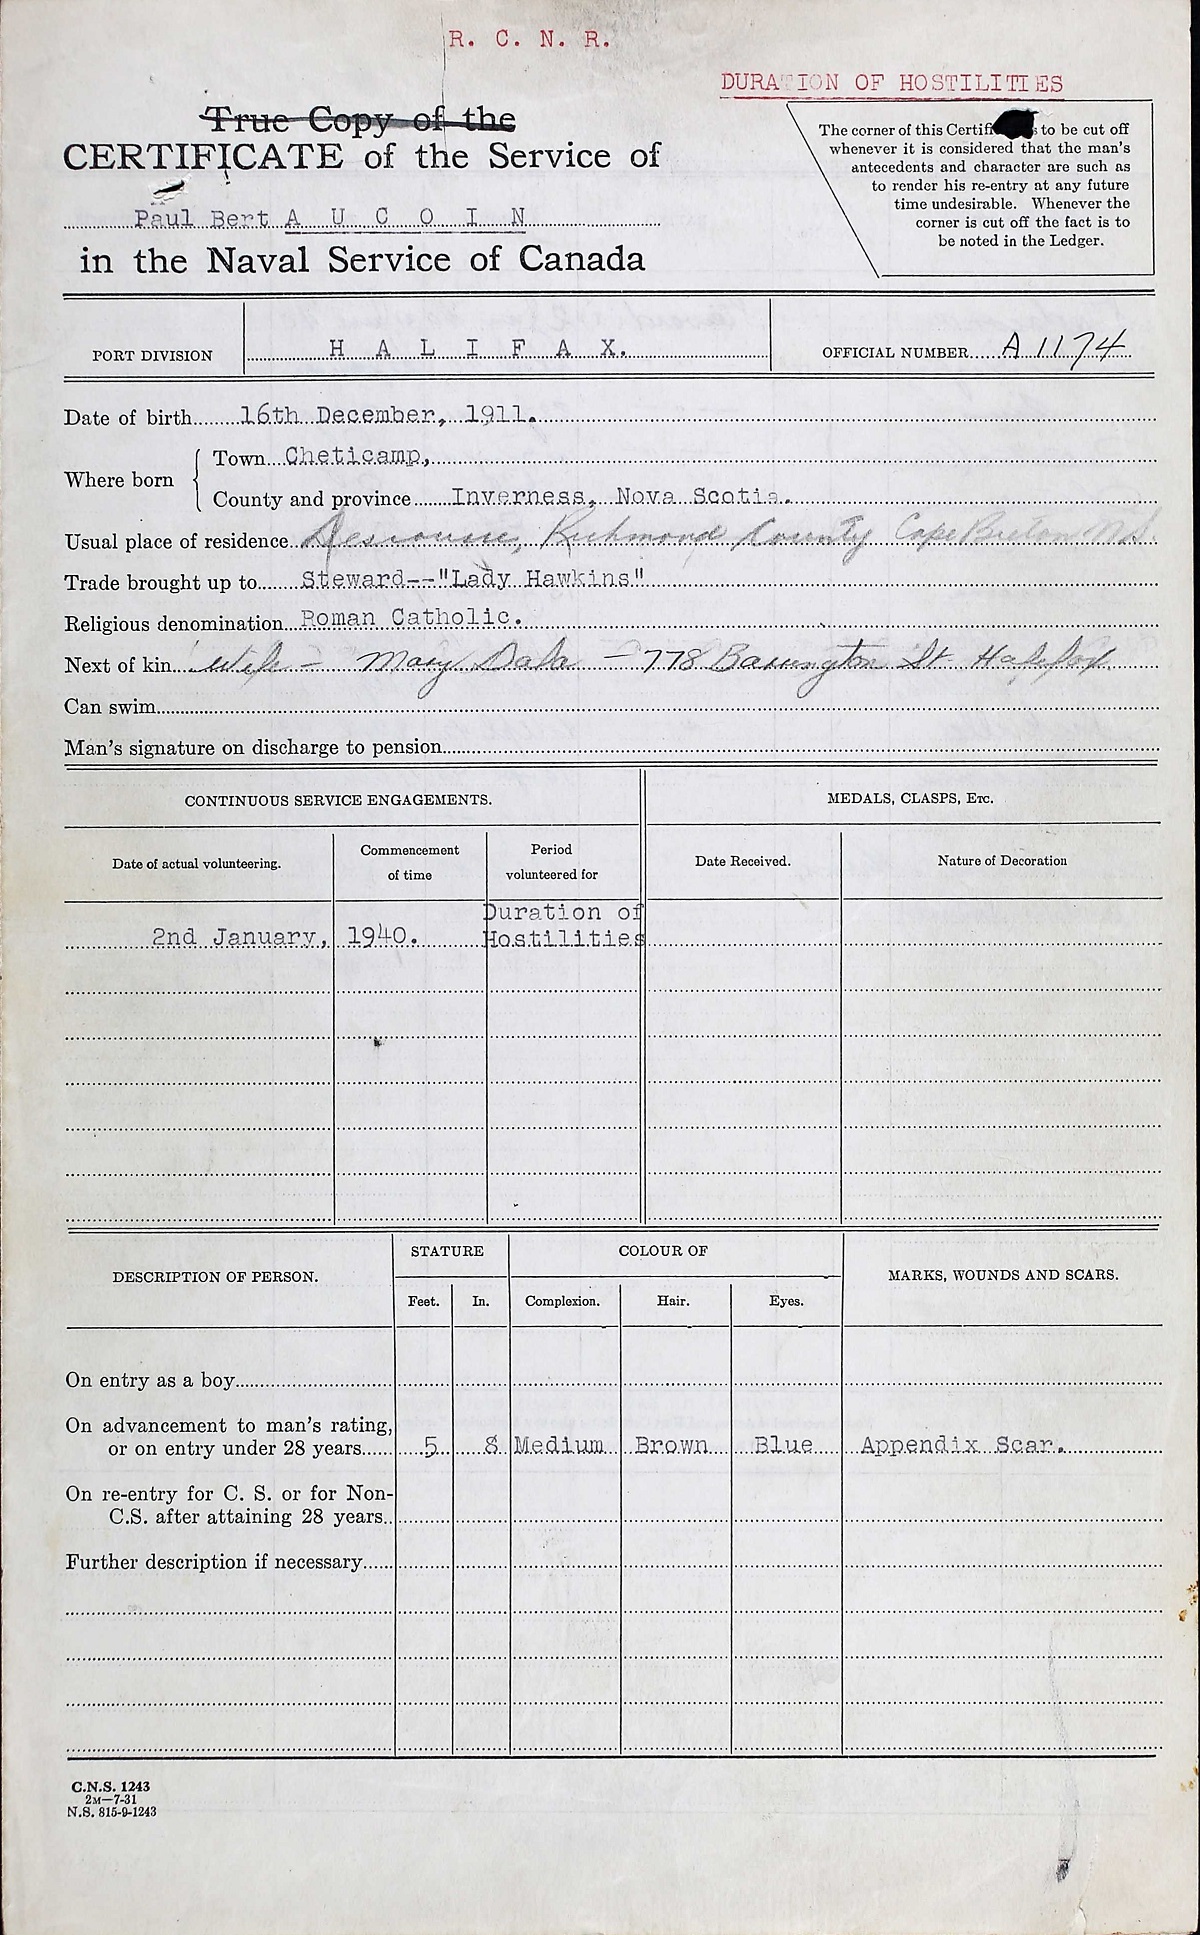 R. C. N. R.
DURATION OF HOSTILITIES
True Copy of the
CERTIFICATE of the Service of
Paul Bert A U C O I N
in the Naval Service of Canada
The corner of this to be cut off
whenever it is considered that the man's
antecedents and character are such as
to render his re-entry at any future
time undesirable. Whenever the
corner is cut off the fact is to
be noted in the Ledger.
PORT DIVISION H A L I F A X. OFFICIAL NUMBER A 1174
Date of birth 16th December, 1911.
Where born
Town Cheticamp,
County and province Inverness, Nova Scotia.
Usual place of residence Richmond County Cape Breton N.S.
Trade brought up to Steward--"Lady Hawkins"
Religious denomination Roman Catholic.
Next of kin Wife - Mary - 778 Barrington St. Halifax
Can swim
Man's signature on discharge to pension
CONTINUOUS SERVICE ENGAGEMENTS. MEDALS, CLASPS, Etc.
Date of actual volunteering. Commencement of time Period volunteered for Date Received. Nature of Decoration
2nd January, 1940. Duration of Hostilities
DESCRIPTION OF PERSON. STATURE COLOUR OF MARKS, WOUNDS AND SCARS.
Feet. In. Complexion. Hair. Eyes.
On entry as a boy
On advancement to man's rating,
or on entry under 28 years 5 8 Medium Brown Blue Appendix Scar.
On re-entry for C. S. or for Non-
C.S. after attaining 28 years
Further description if necessary
C.N.S. 1243
2M—7-31
N.S. 815-9-1243